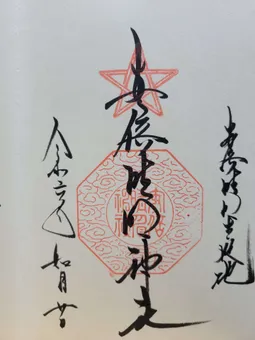 安倍晴明生誕地
安倍晴明神社
令和六年 如月 廿日